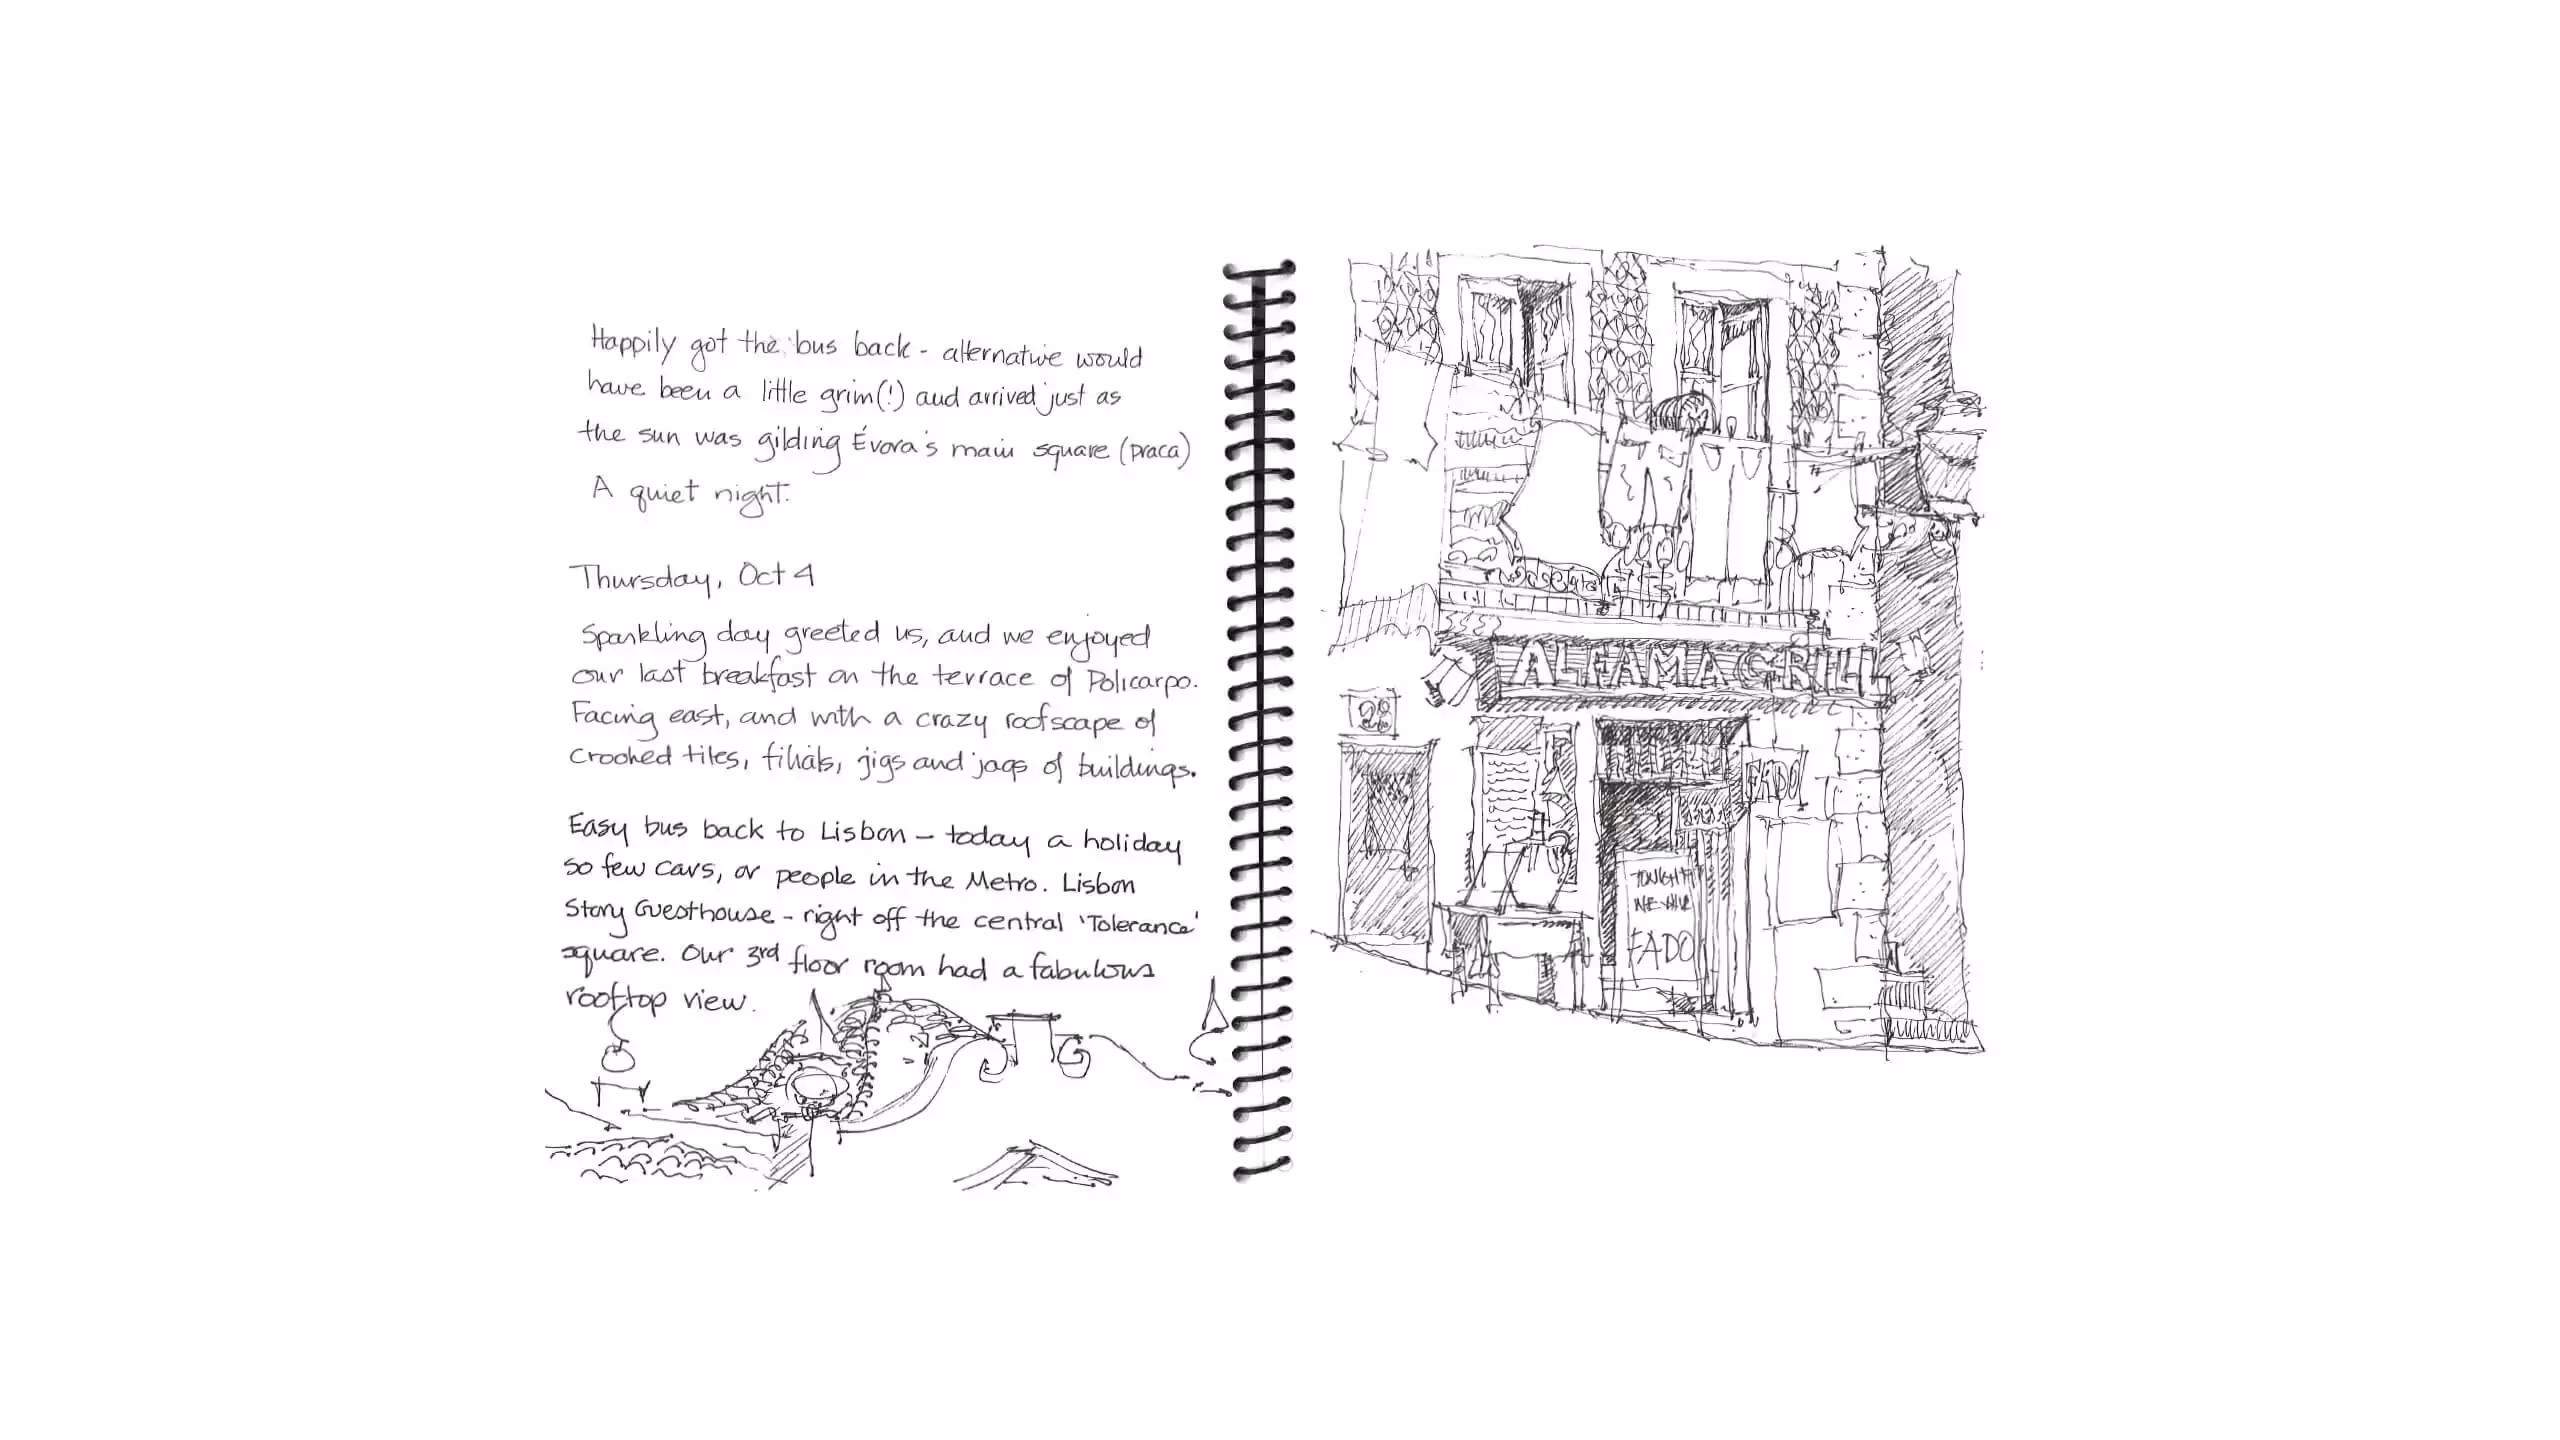 Happily got the bus back - alternative would
have been a little grim(!) and arrived just as
the sun was gilding Évora's main square (praca)
A quiet night.
Thursday, Oct 4
Sparkling day greeted us, and we enjoyed
our last breakfast on the terrace of Policarpo.
Facing east, and with a crazy roofscape of
crooked tiles, finials, jigs and jags of buildings.
Easy bus back to Lisbon – today a holiday
so few cars, or people in the Metro. Lisbon
Story Guesthouse - right off the central 'Tolerance'
square. Our 3rd floor room had a fabulous
rooftop view.
ALFAMA GRILL
28
FADO
TONIGHT
WE HAVE
FADO